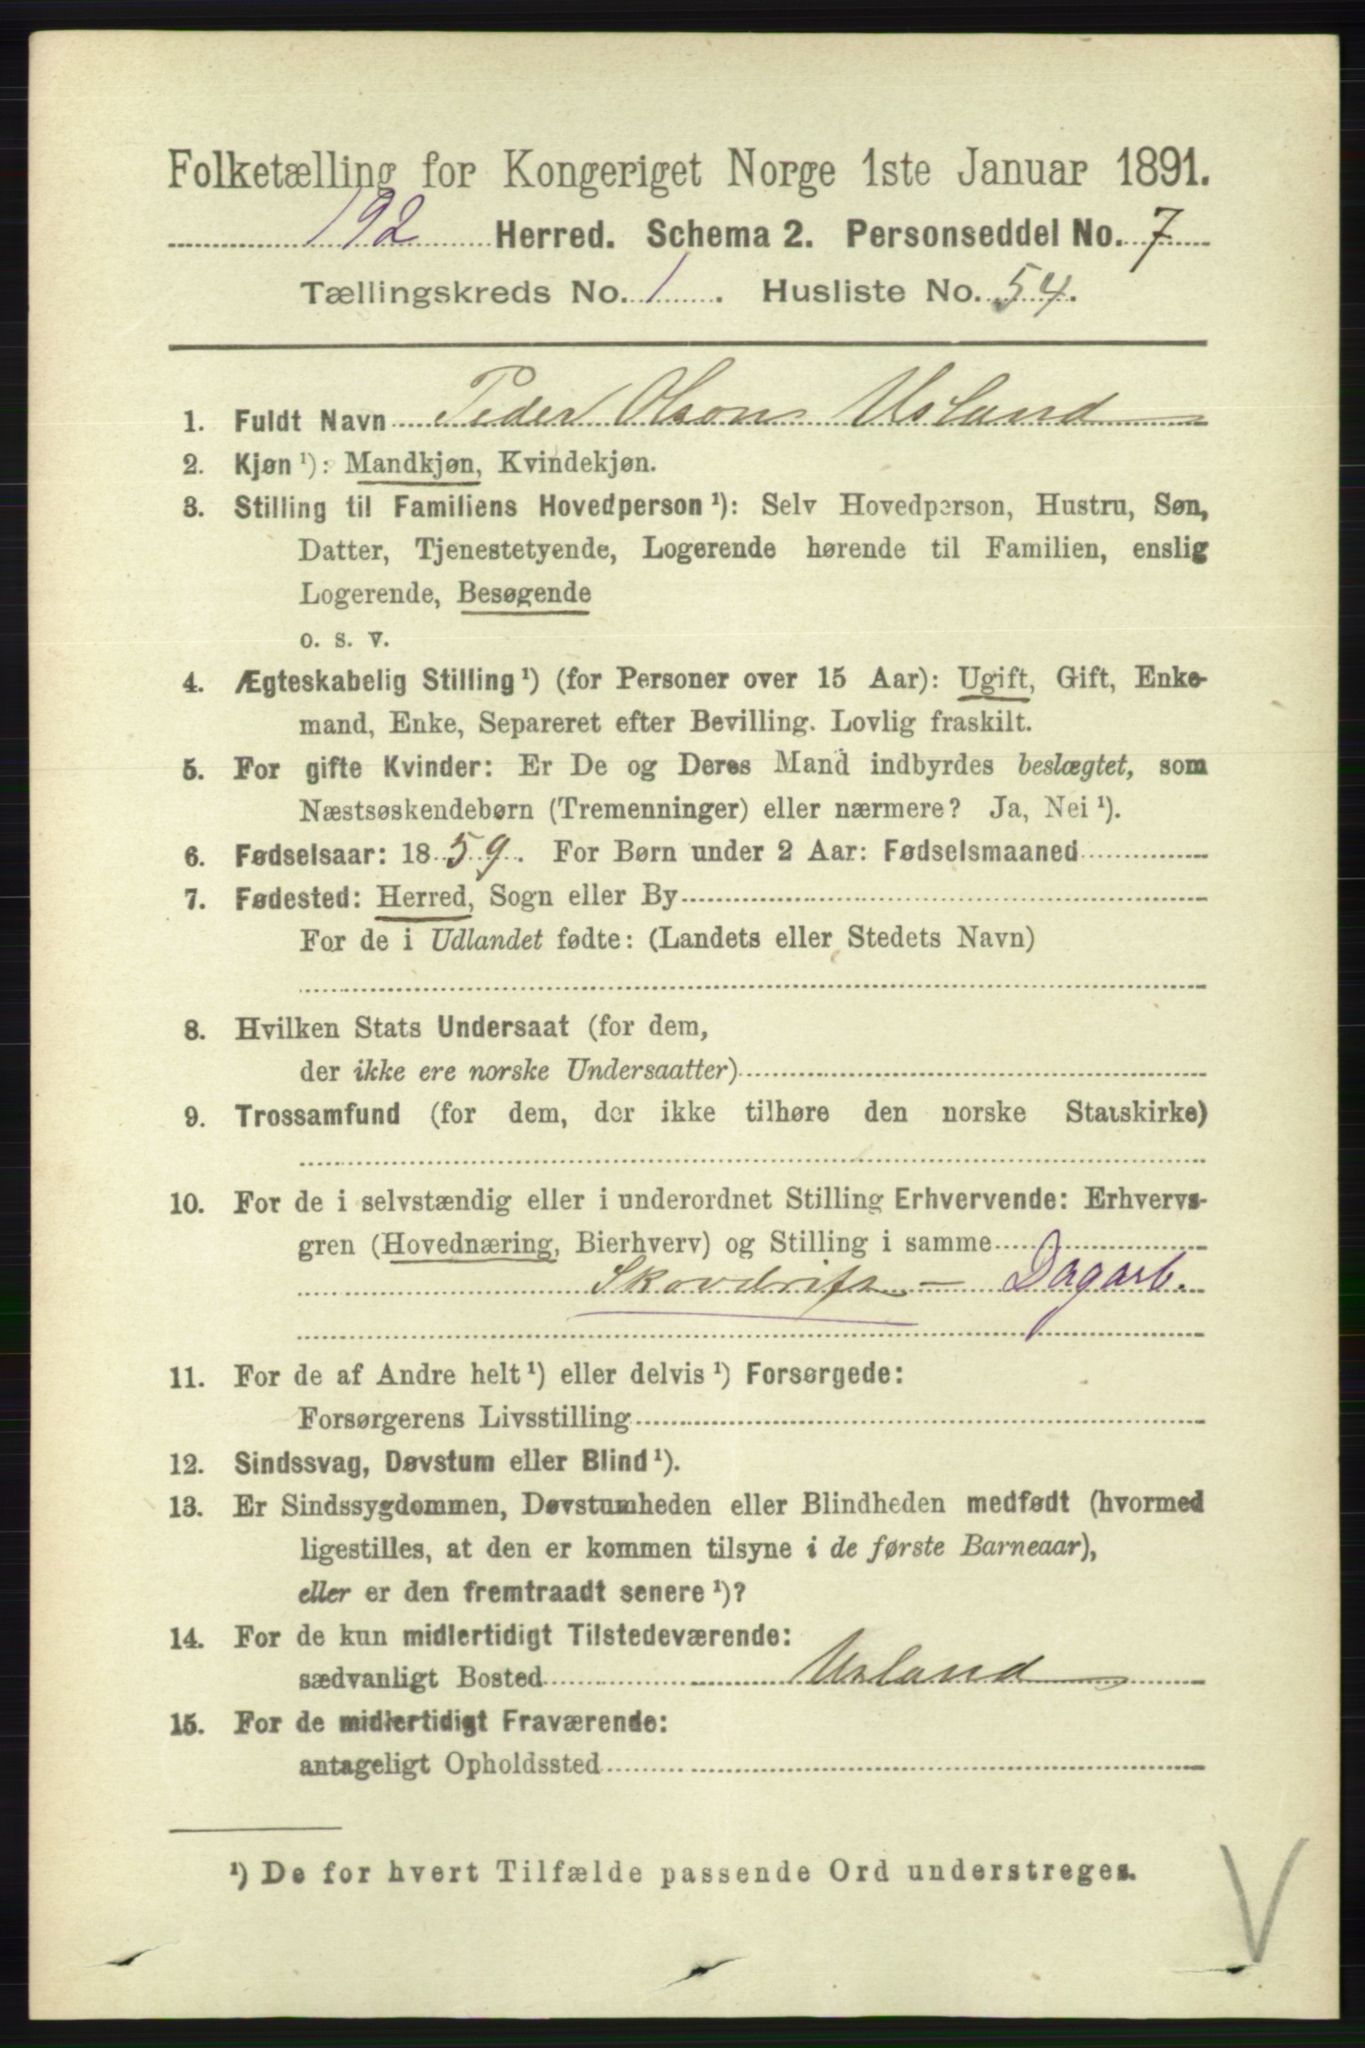 Folketælling for Kongeriget Norge 1ste Januar 1891.
192 Herred. Schema 2. Personseddel No. 7
Tællingskreds No. 1. Husliste No. 54.
1. Fuldt Navn Peder Olson Usland
2. Kjøn ¹): Mandkjøn, Kvindekjøn.
3. Stilling til Familiens Hovedperson ¹): Selv Hovedperson, Hustru, Søn,
Datter, Tjenestetyende, Logerende hørende til Familien, enslig
Logerende, Besøgende
o. s. v.
4. Ægteskabelig Stilling ¹) (for Personer over 15 Aar): Ugift, Gift, Enke-
mand, Enke, Separeret efter Bevilling. Lovlig fraskilt.
5. For gifte Kvinder: Er De og Deres Mand indbyrdes beslægtet, som
Næstsøskendebørn (Tremenninger) eller nærmere? Ja, Nei ¹).
6. Fødselsaar: 1859. For Børn under 2 Aar: Fødselsmaaned
7. Fødested: Herred, Sogn eller By
For de i Udlandet fødte: (Landets eller Stedets Navn)
8. Hvilken Stats Undersaat (for dem,
der ikke ere norske Undersaatter)
9. Trossamfund (for dem, der ikke tilhøre den norske Statskirke)
10. For de i selvstændig eller i underordnet Stilling Erhvervende: Erhvervs-
gren (Hovednæring, Bierhverv) og Stilling i samme
Skovdrift – Dagarb.
11. For de af Andre helt ¹) eller delvis ¹) Forsørgede:
Forsørgerens Livsstilling
12. Sindssvag, Døvstum eller Blind ¹).
13. Er Sindssygdommen, Døvstumheden eller Blindheden medfødt (hvormed
ligestilles, at den er kommen tilsyne i de første Barneaar),
eller er den fremtraadt senere ¹)?
14. For de kun midlertidigt Tilstedeværende:
sædvanligt Bosted Usland
15. For de midlertidigt Fraværende:
antageligt Opholdssted
¹) De for hvert Tilfælde passende Ord understreges.
V